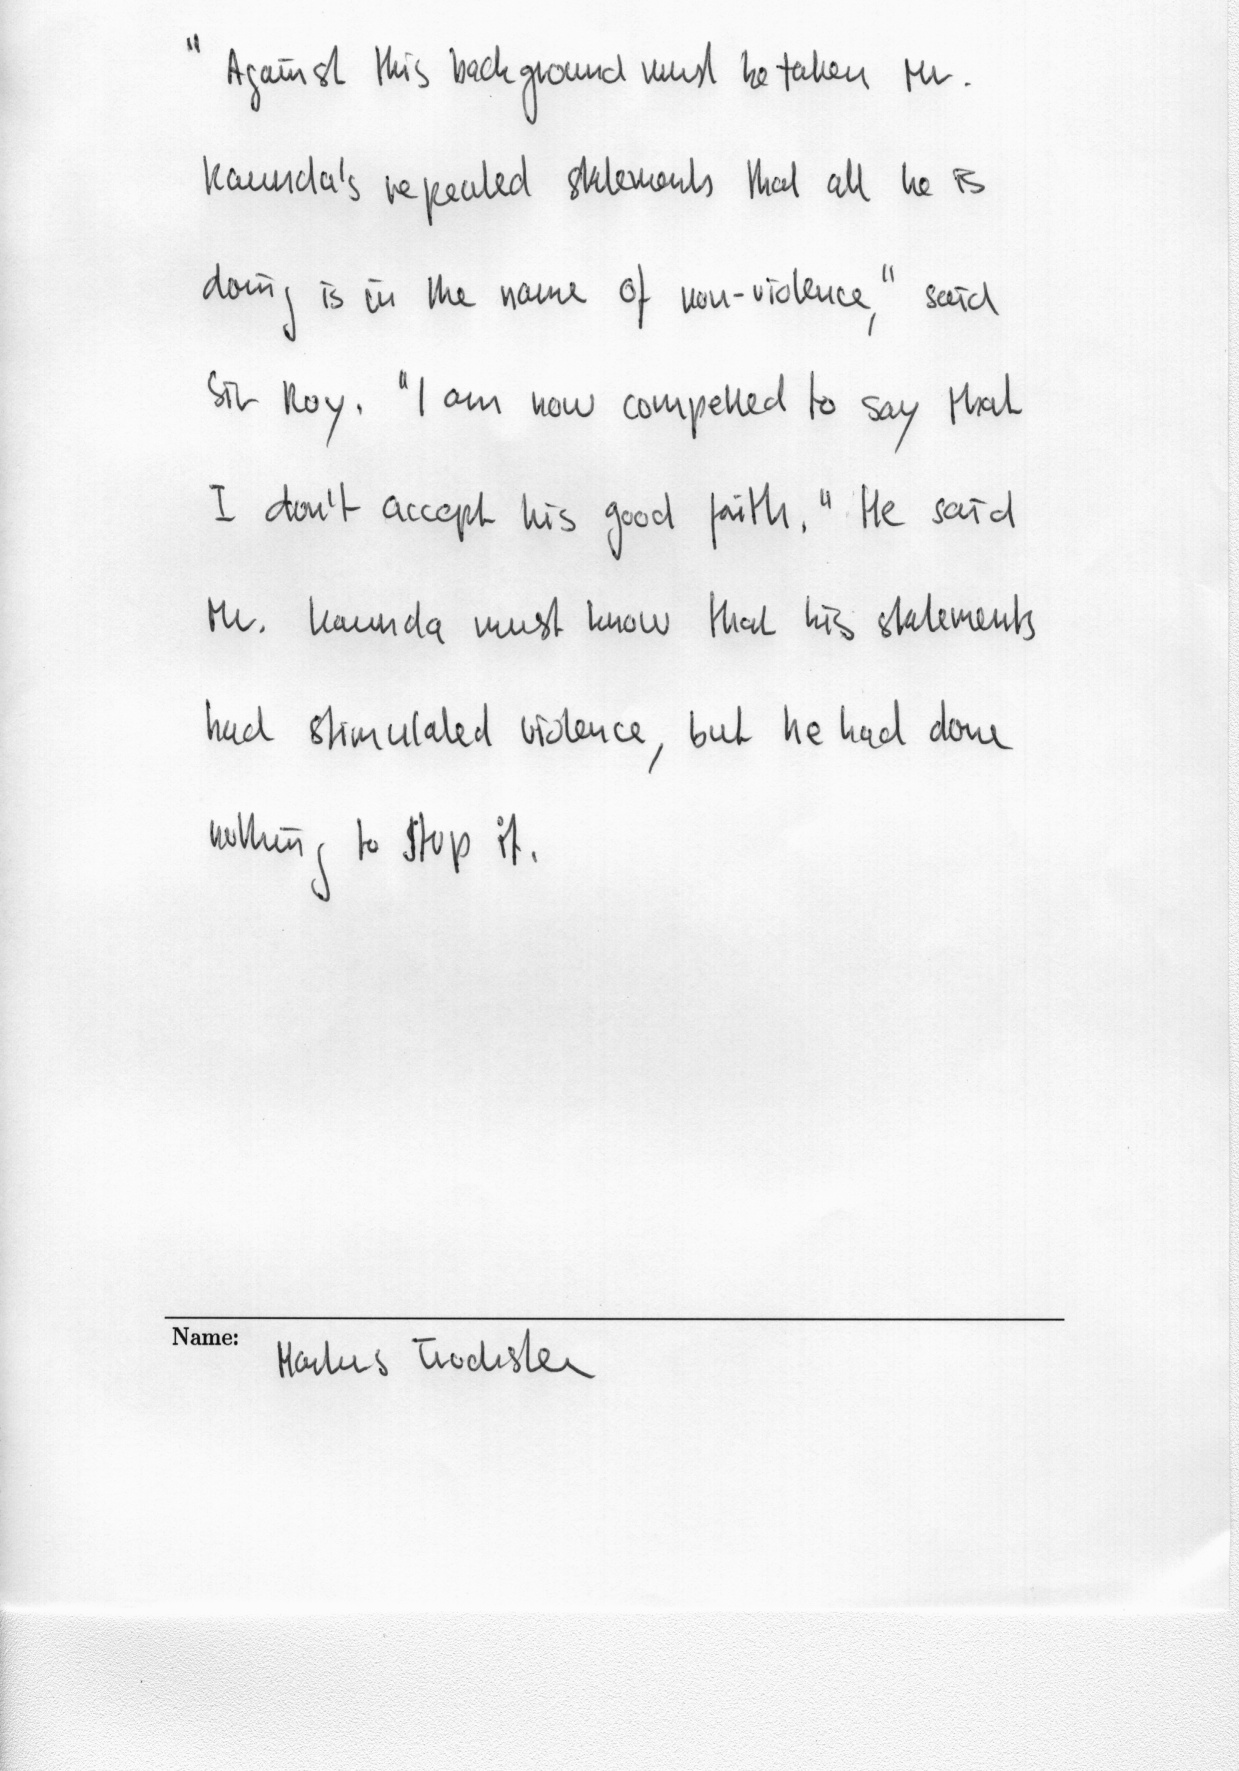 " Against this background must be taken Mr.
Kaunda's repeated statements that all he is
doing is in the name of non-violence," said
Sir Roy. "I am now compelled to say that
I don't accept his good faith." He said
Mr. Kaunda must know that his statements
had stimulated violence, but he had done
nothing to stop it.
Name:
Markus